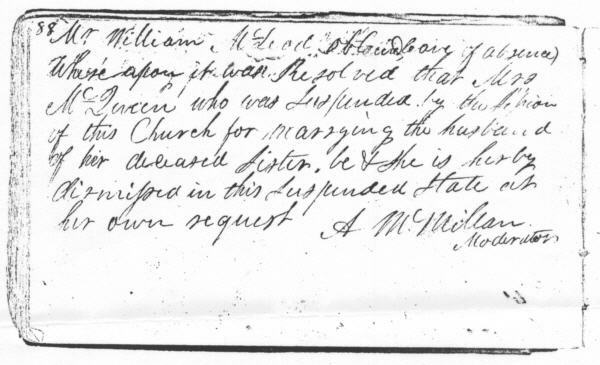 88
Mr William McLeod obtained leave of absence
Whereapon it was Resolved that Mrs
McQueen who was Suspended by the Session
of this Church for marrying the husband
of her deceased Sister, be & she is herby
dismissed in this Suspended State at
her own request A McMillan
Moderator